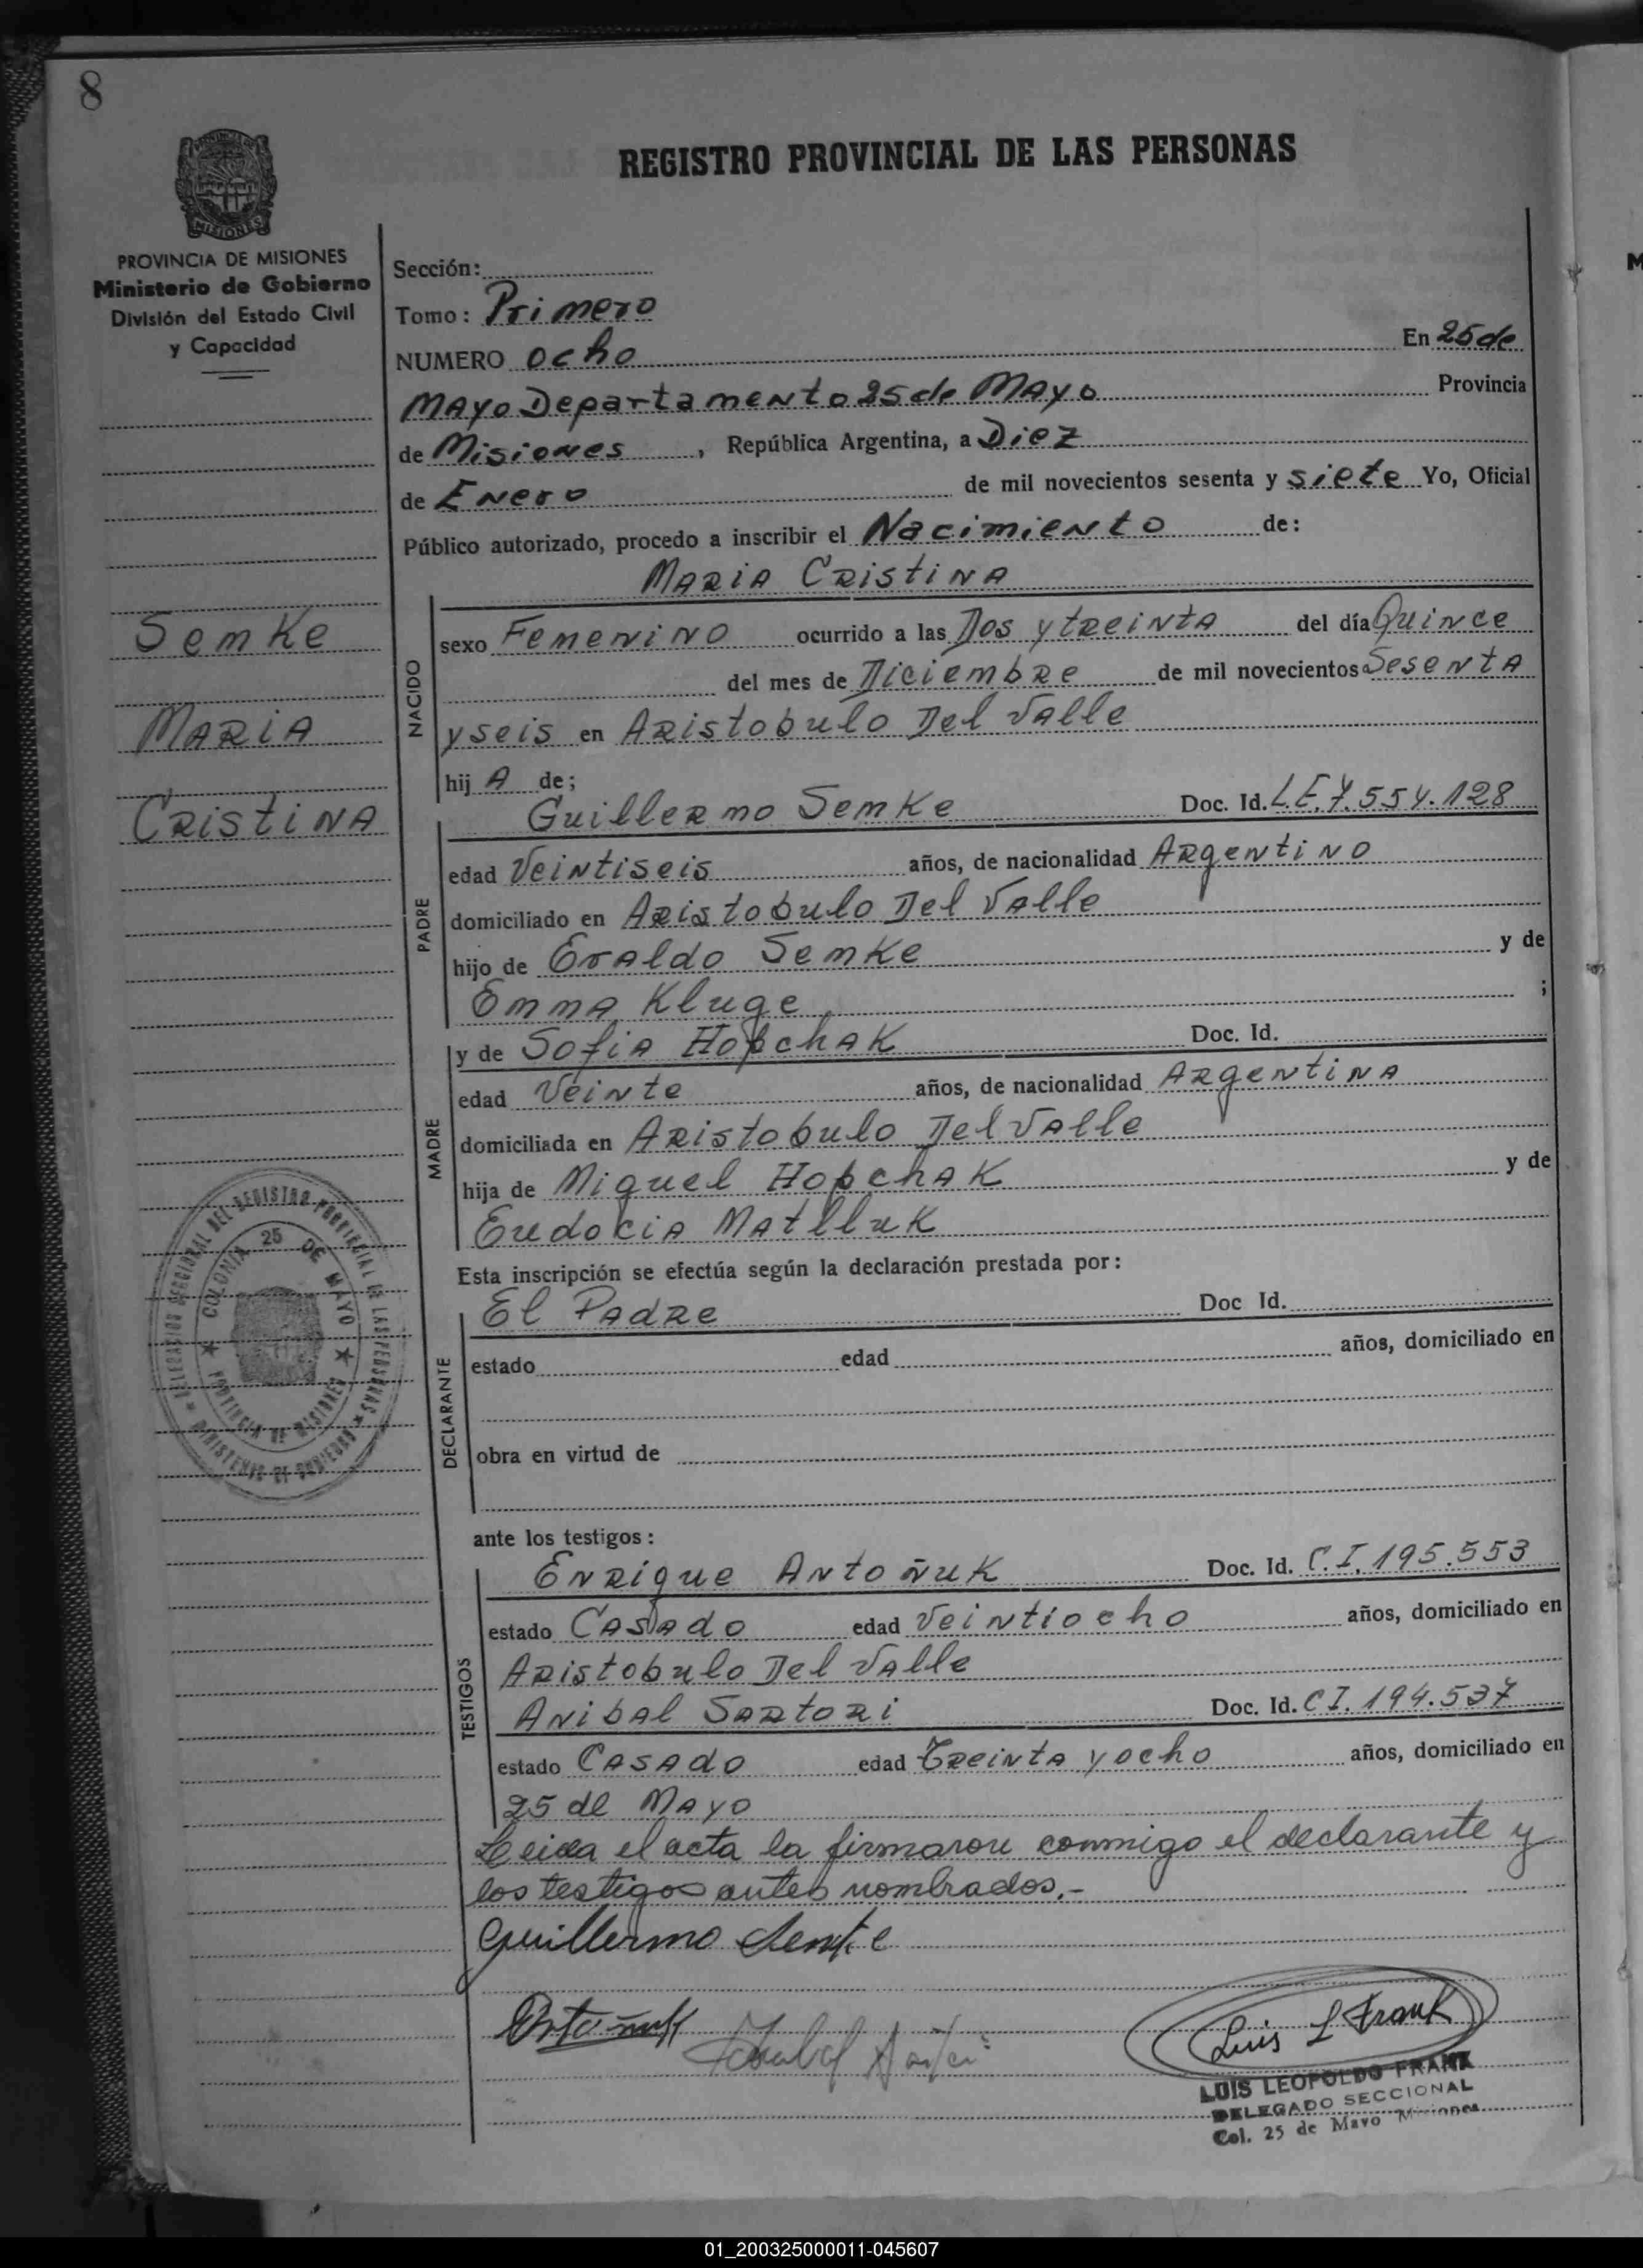 8
REGISTRO PROVINCIAL DE LAS PERSONAS
PROVINCIA DE MISIONES
Ministerio de Gobierno
División del Estado Civil
y Capacidad
Semke
MARIA
CRistiNA
Sección:
Tomo: Primero
NUMERO ocho En 25 de
MAYO Departamento 25 de MAYO Provincia
de Misiones, República Argentina, a Diez
de Enero de mil novecientos sesenta y siete Yo, Oficial
Público autorizado, procedo a inscribir el Nacimiento de:
MARIA CRistiNA
NACIDO
sexo Femenino ocurrido a las Dos y treinta del día Quince
del mes de Diciembre de mil novecientos Sesenta
y seis en Aristobulo Del Valle
hij A de;
Guillermo Semke Doc. Id. L.E. 7.554.128
PADRE
edad Veintiseis años, de nacionalidad Argentino
domiciliado en Aristobulo Del Valle
hijo de Evaldo Semke y de
Emma Kluge ;
MADRE
y de Sofia Hopchak Doc. Id.
edad Veinte años, de nacionalidad Argentina
domiciliada en Aristobulo Del Valle
hija de Miguel Hopchak y de
Eudokia Matlluk
Esta inscripción se efectúa según la declaración prestada por:
DECLARANTE
El Padre Doc Id.
estado edad años, domiciliado en
obra en virtud de
ante los testigos:
TESTIGOS
Enrique Antoñuk Doc. Id. C.I. 195.553
estado Casado edad Veintiocho años, domiciliado en
Aristobulo Del Valle
Anibal Sartori Doc. Id. C.I. 194.537
estado Casado edad Treinta y ocho años, domiciliado en
25 de Mayo
Leida el acta la firmaron conmigo el declarante y
los testigos antes nombrados.-
Guillermo Semke
Luis L Frank
LUIS LEOPOLDO FRANK
DELEGADO SECCIONAL
Col. 25 de Mayo Misiones
DELEGACION SECCIONAL DEL REGISTRO PROVINCIAL DE LAS PERSONAS
MINISTERIO DE GOBIERNO
COLONIA 25 DE MAYO
PROVINCIA DE MISIONES
01_200325000011-045607